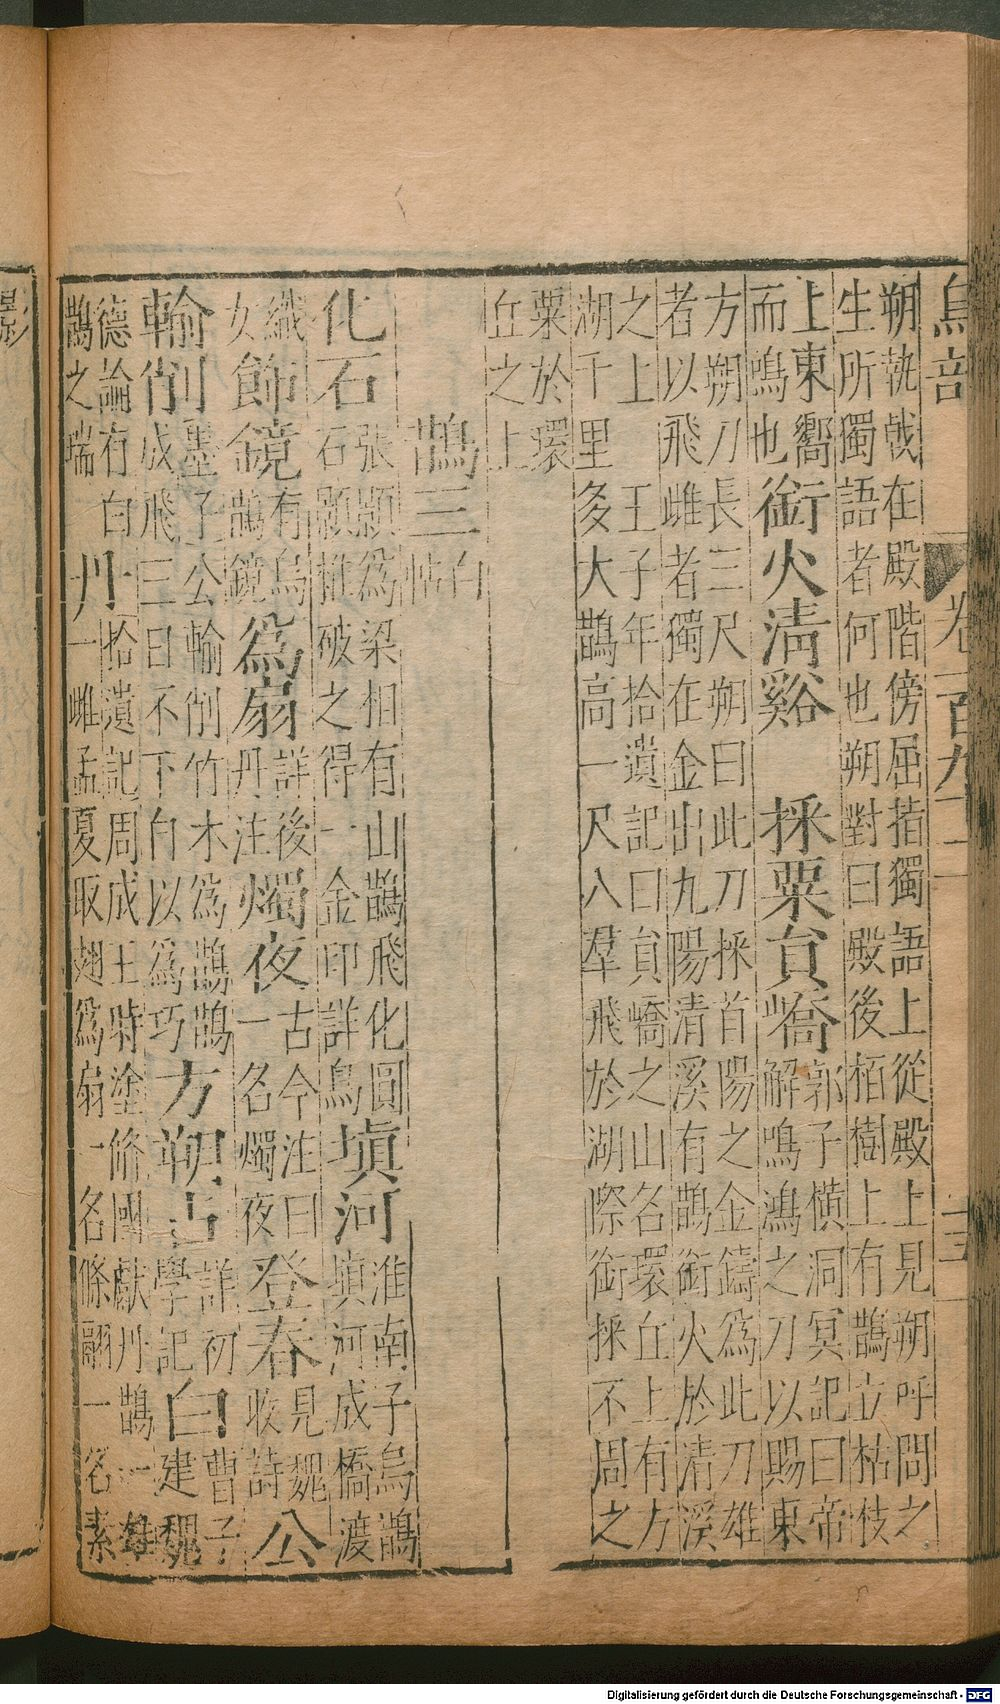 鳥部 卷一百九十二 十三
朔執戟在殿階傍屈指獨語上從殿上見朔呼問之
生所獨語者何也朔對曰殿後栢樹上有鵲立枯枝
上東嚮
而鳴也
銜火清谿
採粟負嶠
郭子橫洞冥記曰帝
解鳴鴻之刀以賜東
方朔刀長三尺朔曰此刀採首陽之金鑄爲此刀雄
者以飛雌者獨在金出九陽清溪有鵲銜火於清溪
之上 王子年拾遺記曰負嶠之山名環丘上有方
湖千里多大鵲高一尺八羣飛於湖際銜採不周之
粟於環
丘之上
鵲三 白帖
化石
張顥爲梁相有山鵲飛化圓
石顥推破之得一金印詳鳥
填河
淮南子烏鵲
填河成橋渡
織
女
飾鏡
有烏
鵲鏡
爲扇
詳後
丹注
燭夜
古今注曰
一名燭夜
登春
見魏
收詩
公
輸削
墨子公輸削竹木爲鵲鵲
成飛三日不下自以爲巧
方朔占
詳初
學記
白
曹子
建魏
德論有白
鵲之瑞
丹
拾遺記周成王時塗脩國獻丹鵲一
一雌孟夏取翅爲扇一名條翮一名素
影
Digitalisierung gefördert durch die Deutsche Forschungsgemeinschaft - DFG